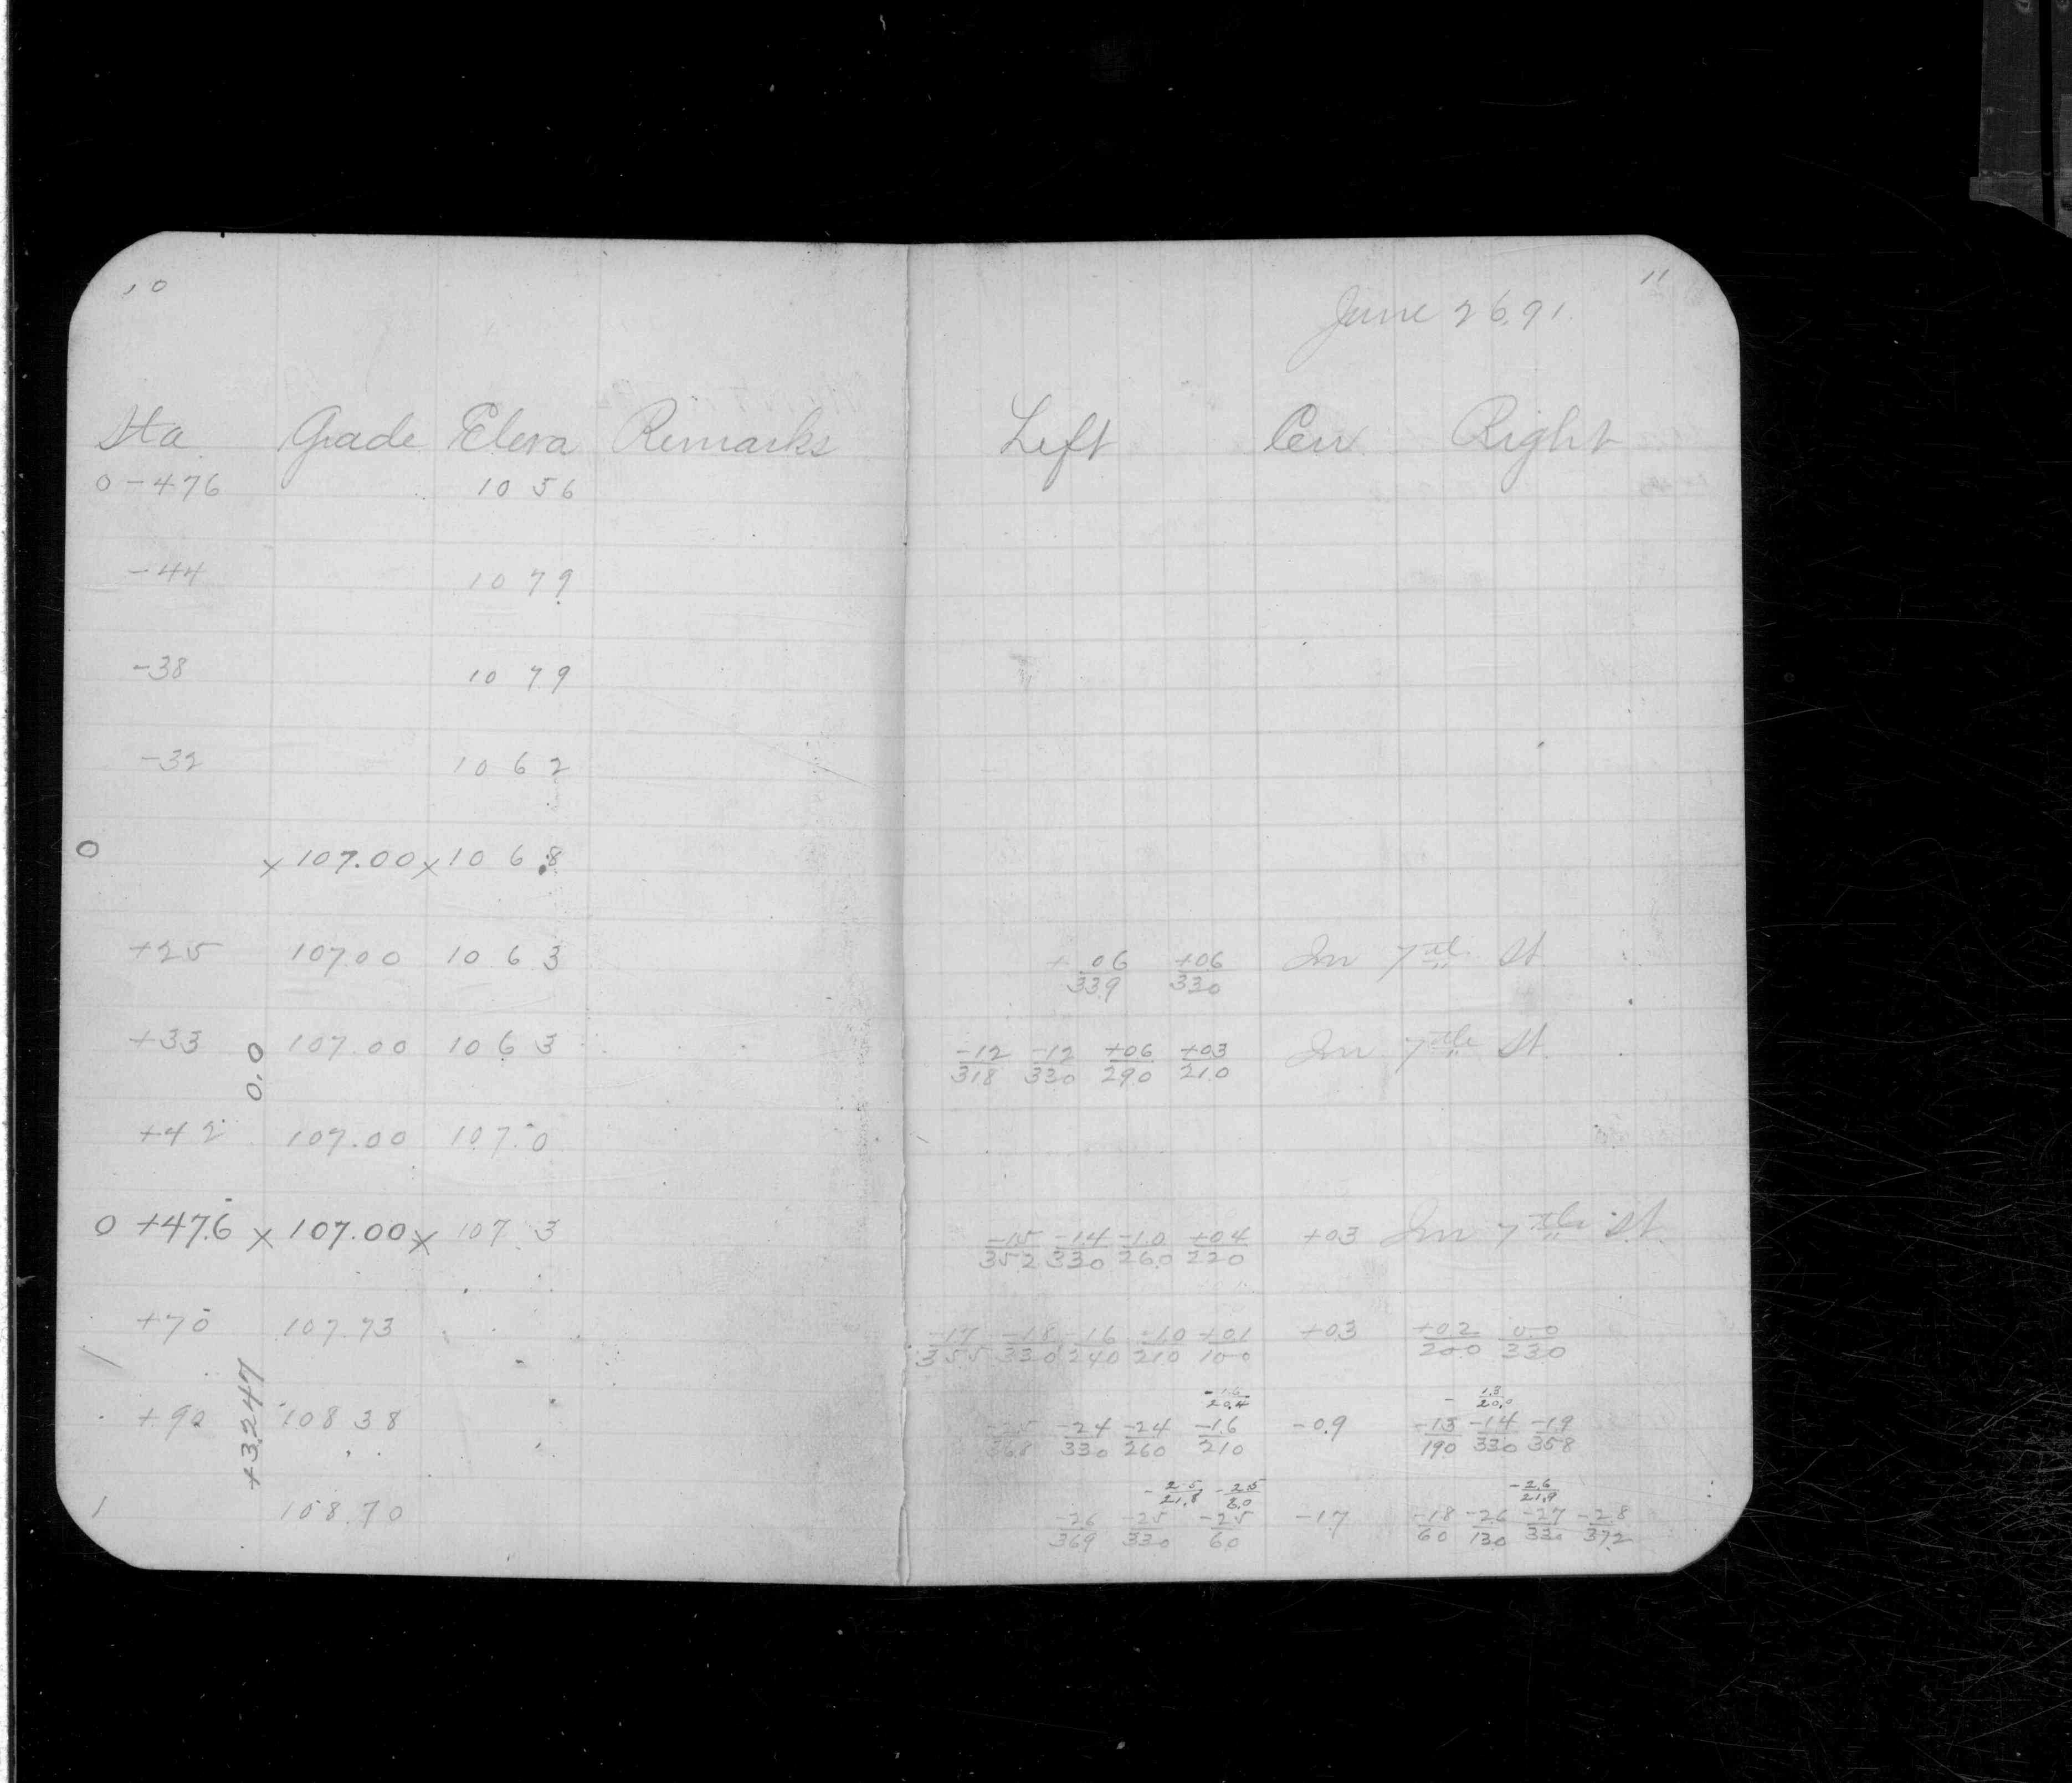 10
Sta Grade Eleva Remarks
0 -476 1056
-44 1079
-38 1079
-32 1062
0 x 107.00 x 1068
+25 107.00 1063
+33 107.00 1063
0.0
+42 107.00 107.0
0 +47.6 x 107.00 x 107 3
+70 107.73
+90 108 38
+3.247
1 108.70
11
June 26, 91.
Left Cen Right
+06/339 +06/330 In 7th St
-12/318 -12/330 +06/290 +03/210 In 7th St.
-15/352 -14/330 -1.0/260 +04/220 +03 In 7th St.
-17/355 -18/330 -16/240 -10/210 +01/100 +03 +02/200 00/330
-1.6/20.4 - 1.3/20.0
-25/368 -24/330 -24/260 -1.6/210 -0.9 -13/190 -14/330 -19/358
-2.5/21.8 -2.5/8.0 -2.6/21.9
-26/369 -25/330 -25/60 -1.7 -18/60 -26/130 -27/330 -28/372